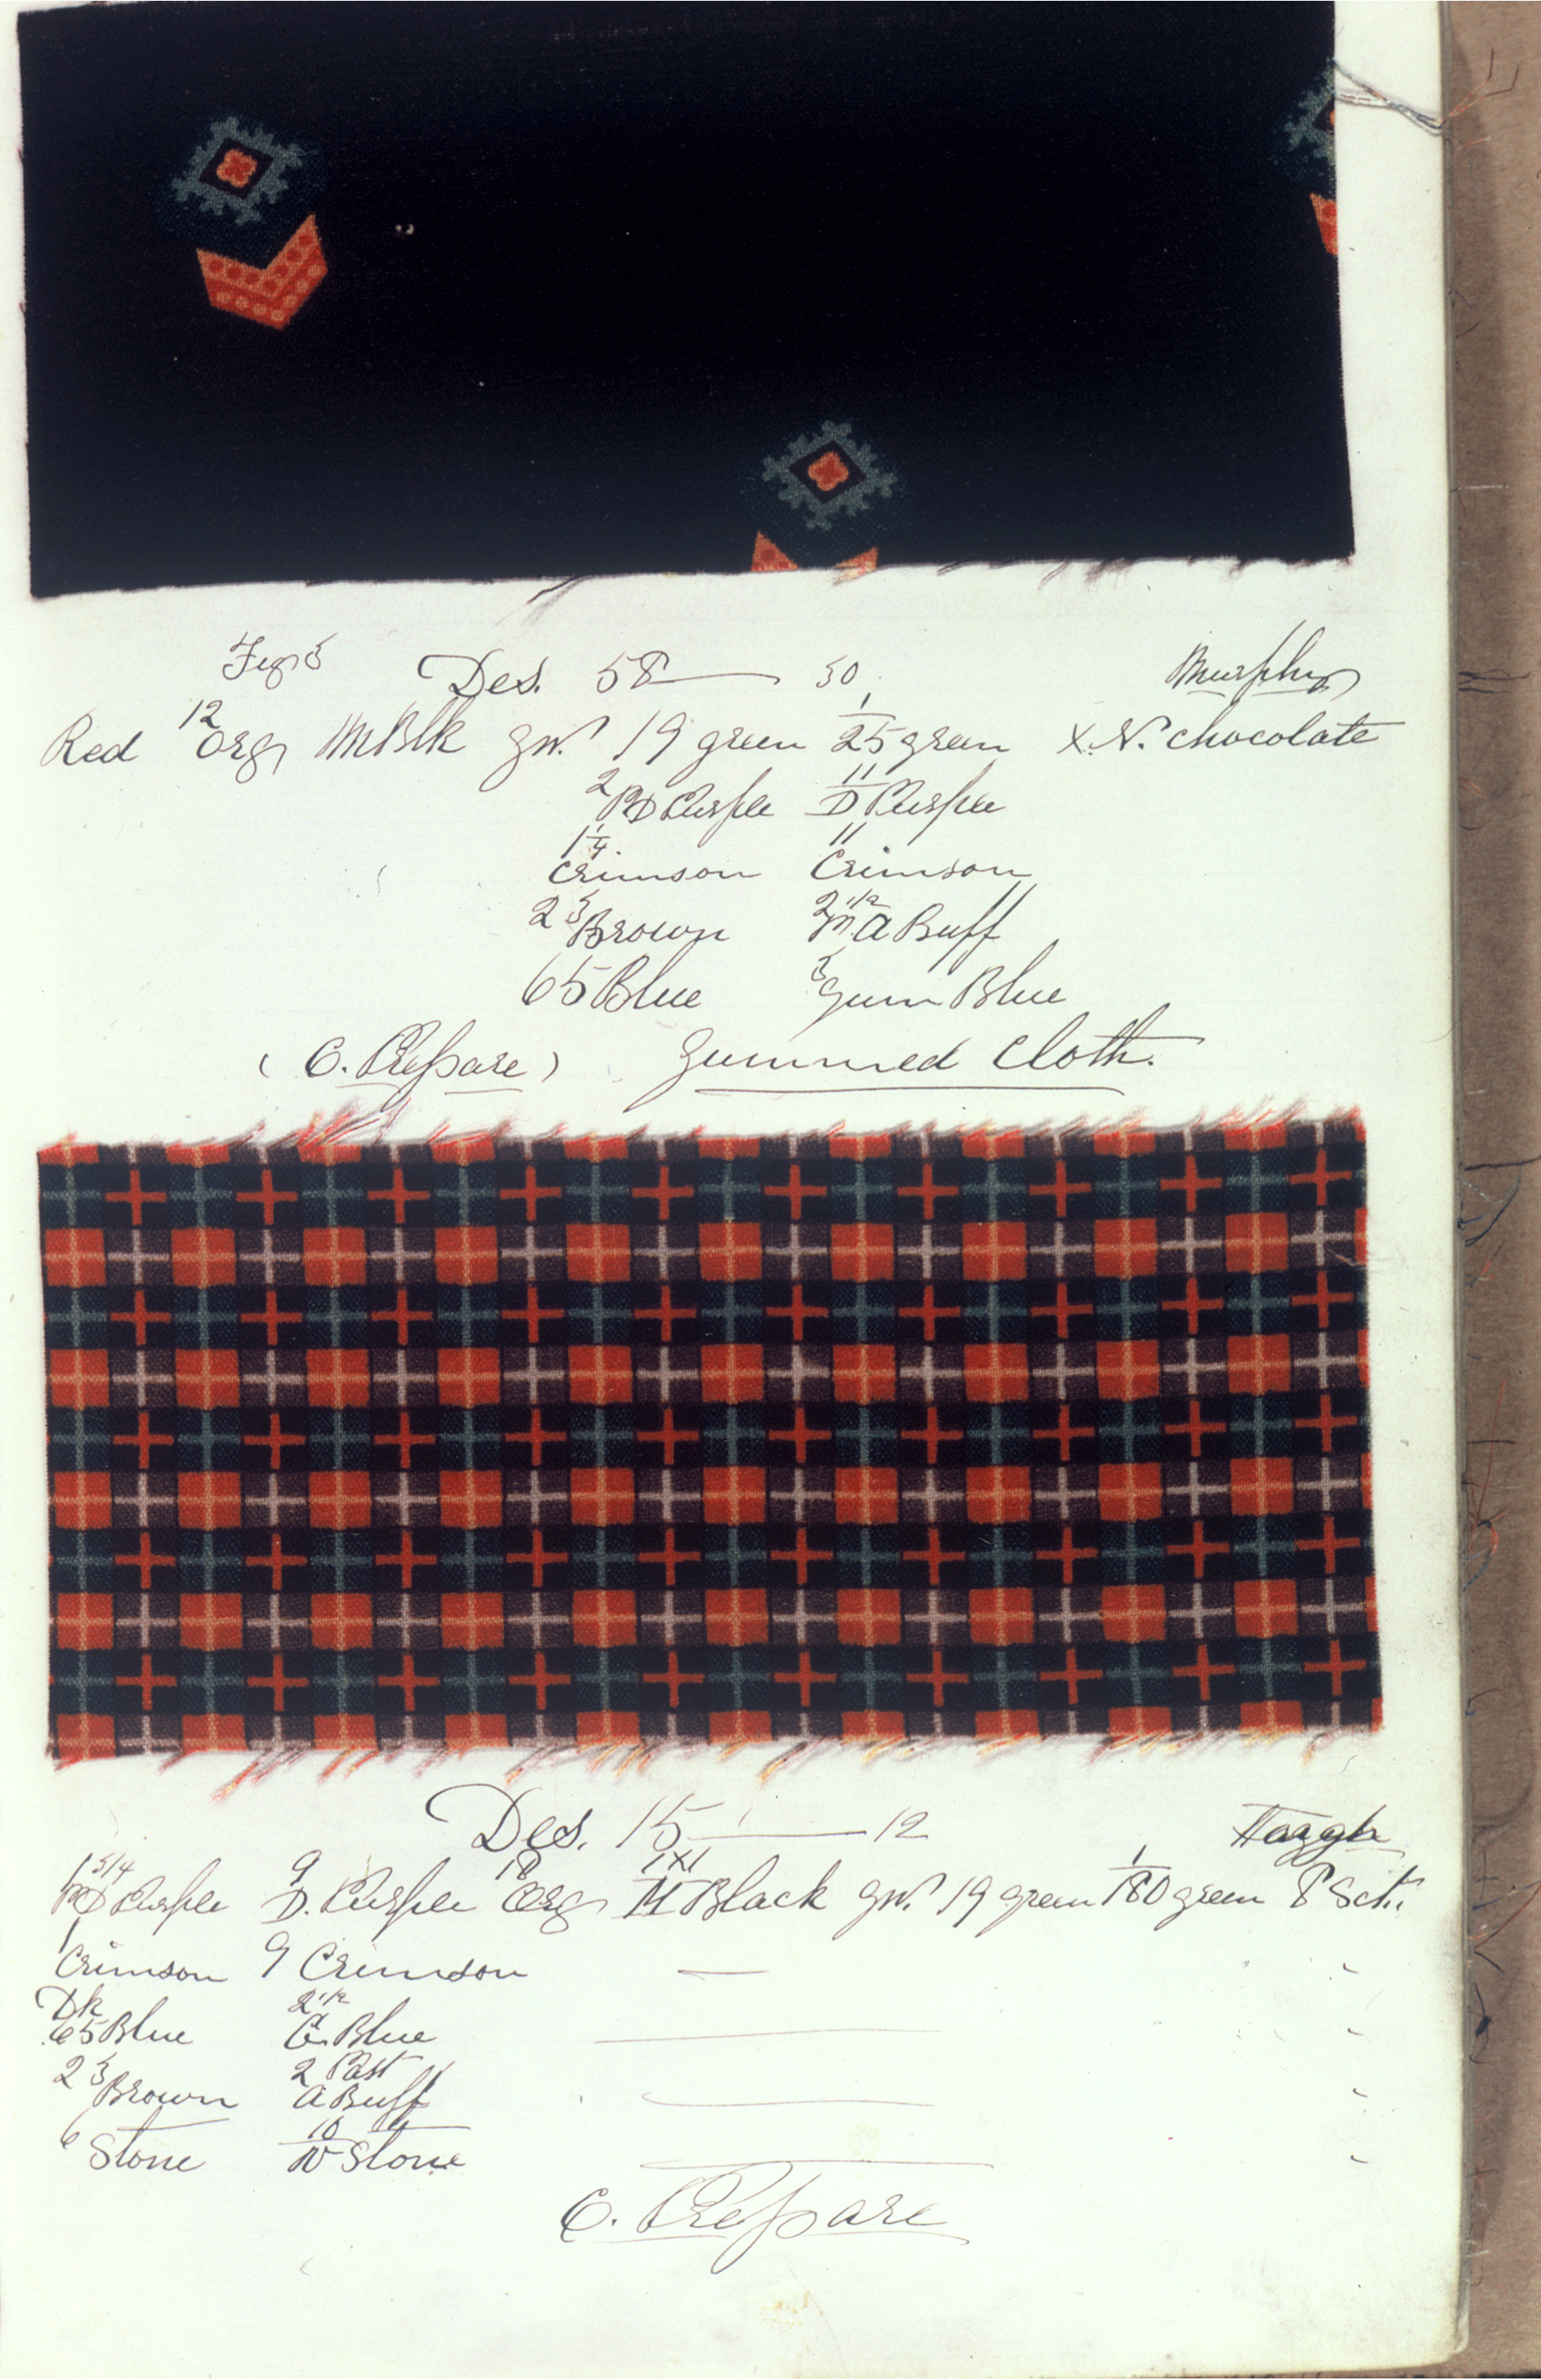 Des. 58 — 30 Murphy
Red 12 Org MBlk gw. 19 green 1/25 green X.N. chocolate
2 RD Purple 11 D Purple
1 1/4. Crimson 11 Crimson
2 3 Brown 2 1/2 M. A Buff
65 Blue 3 Gum Blue
(C. Prepare) Gummed Cloth.
Des. 15 — 12
1 3/4 RD Purple 9 D. Purple 18 Org M Black gw. 19 green 1/80 green 8 Sct.
1 Crimson 9 Crimson —
Dk 65 Blue 2 1/2 G. Blue —
2 3 Brown 2 Past A Buff —
6 Stone 10 N Stone —
C. Prepare